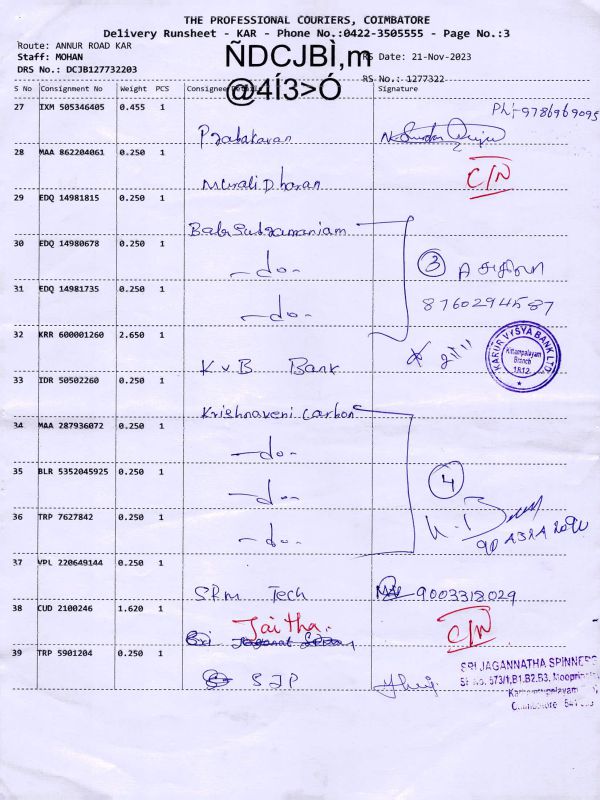 THE PROFESSIONAL COURIERS, COIMBATORE
Delivery Runsheet - KAR - Phone No.:0422-3505555 - Page No.:3
Route: ANNUR ROAD KAR
Staff: MOHAN
RS Date: 21-Nov-2023
DRS No.: DCJB127732203
ÑDCJBÌ,m
@4Í3>Ó
RS No.: 1277322
S No Consignment No Weight PCS Consignee Details Signature
27 IXM 505346405 0.455 1 Ph:-9786969095
Prabakaran
28 MAA 862204061 0.250 1
Murali Dharan C/N
29 EDQ 14981815 0.250 1
Babu Subramaniam
30 EDQ 14980678 0.250 1
-do- 3
31 EDQ 14981735 0.250 1
-do- 8760294587
32 KRR 600001260 2.650 1
K.V.B Bank
KARUR VYSYA BANK LTD
Branch
1812
33 IDR 50502260 0.250 1
Krishnaveni Carbon
34 MAA 287936072 0.250 1
-do-
35 BLR 5352045925 0.250 1
-do- 4
36 TRP 7627842 0.250 1
-do-
37 VPL 220649144 0.250 1
SRM Tech 9003318029
38 CUD 2100246 1.620 1
Jaitha. C/N
39 TRP 5901204 0.250 1
SJP
SRI JAGANNATHA SPINNERS
SF No. 573/1,B1,B2,B3,
Coimbatore